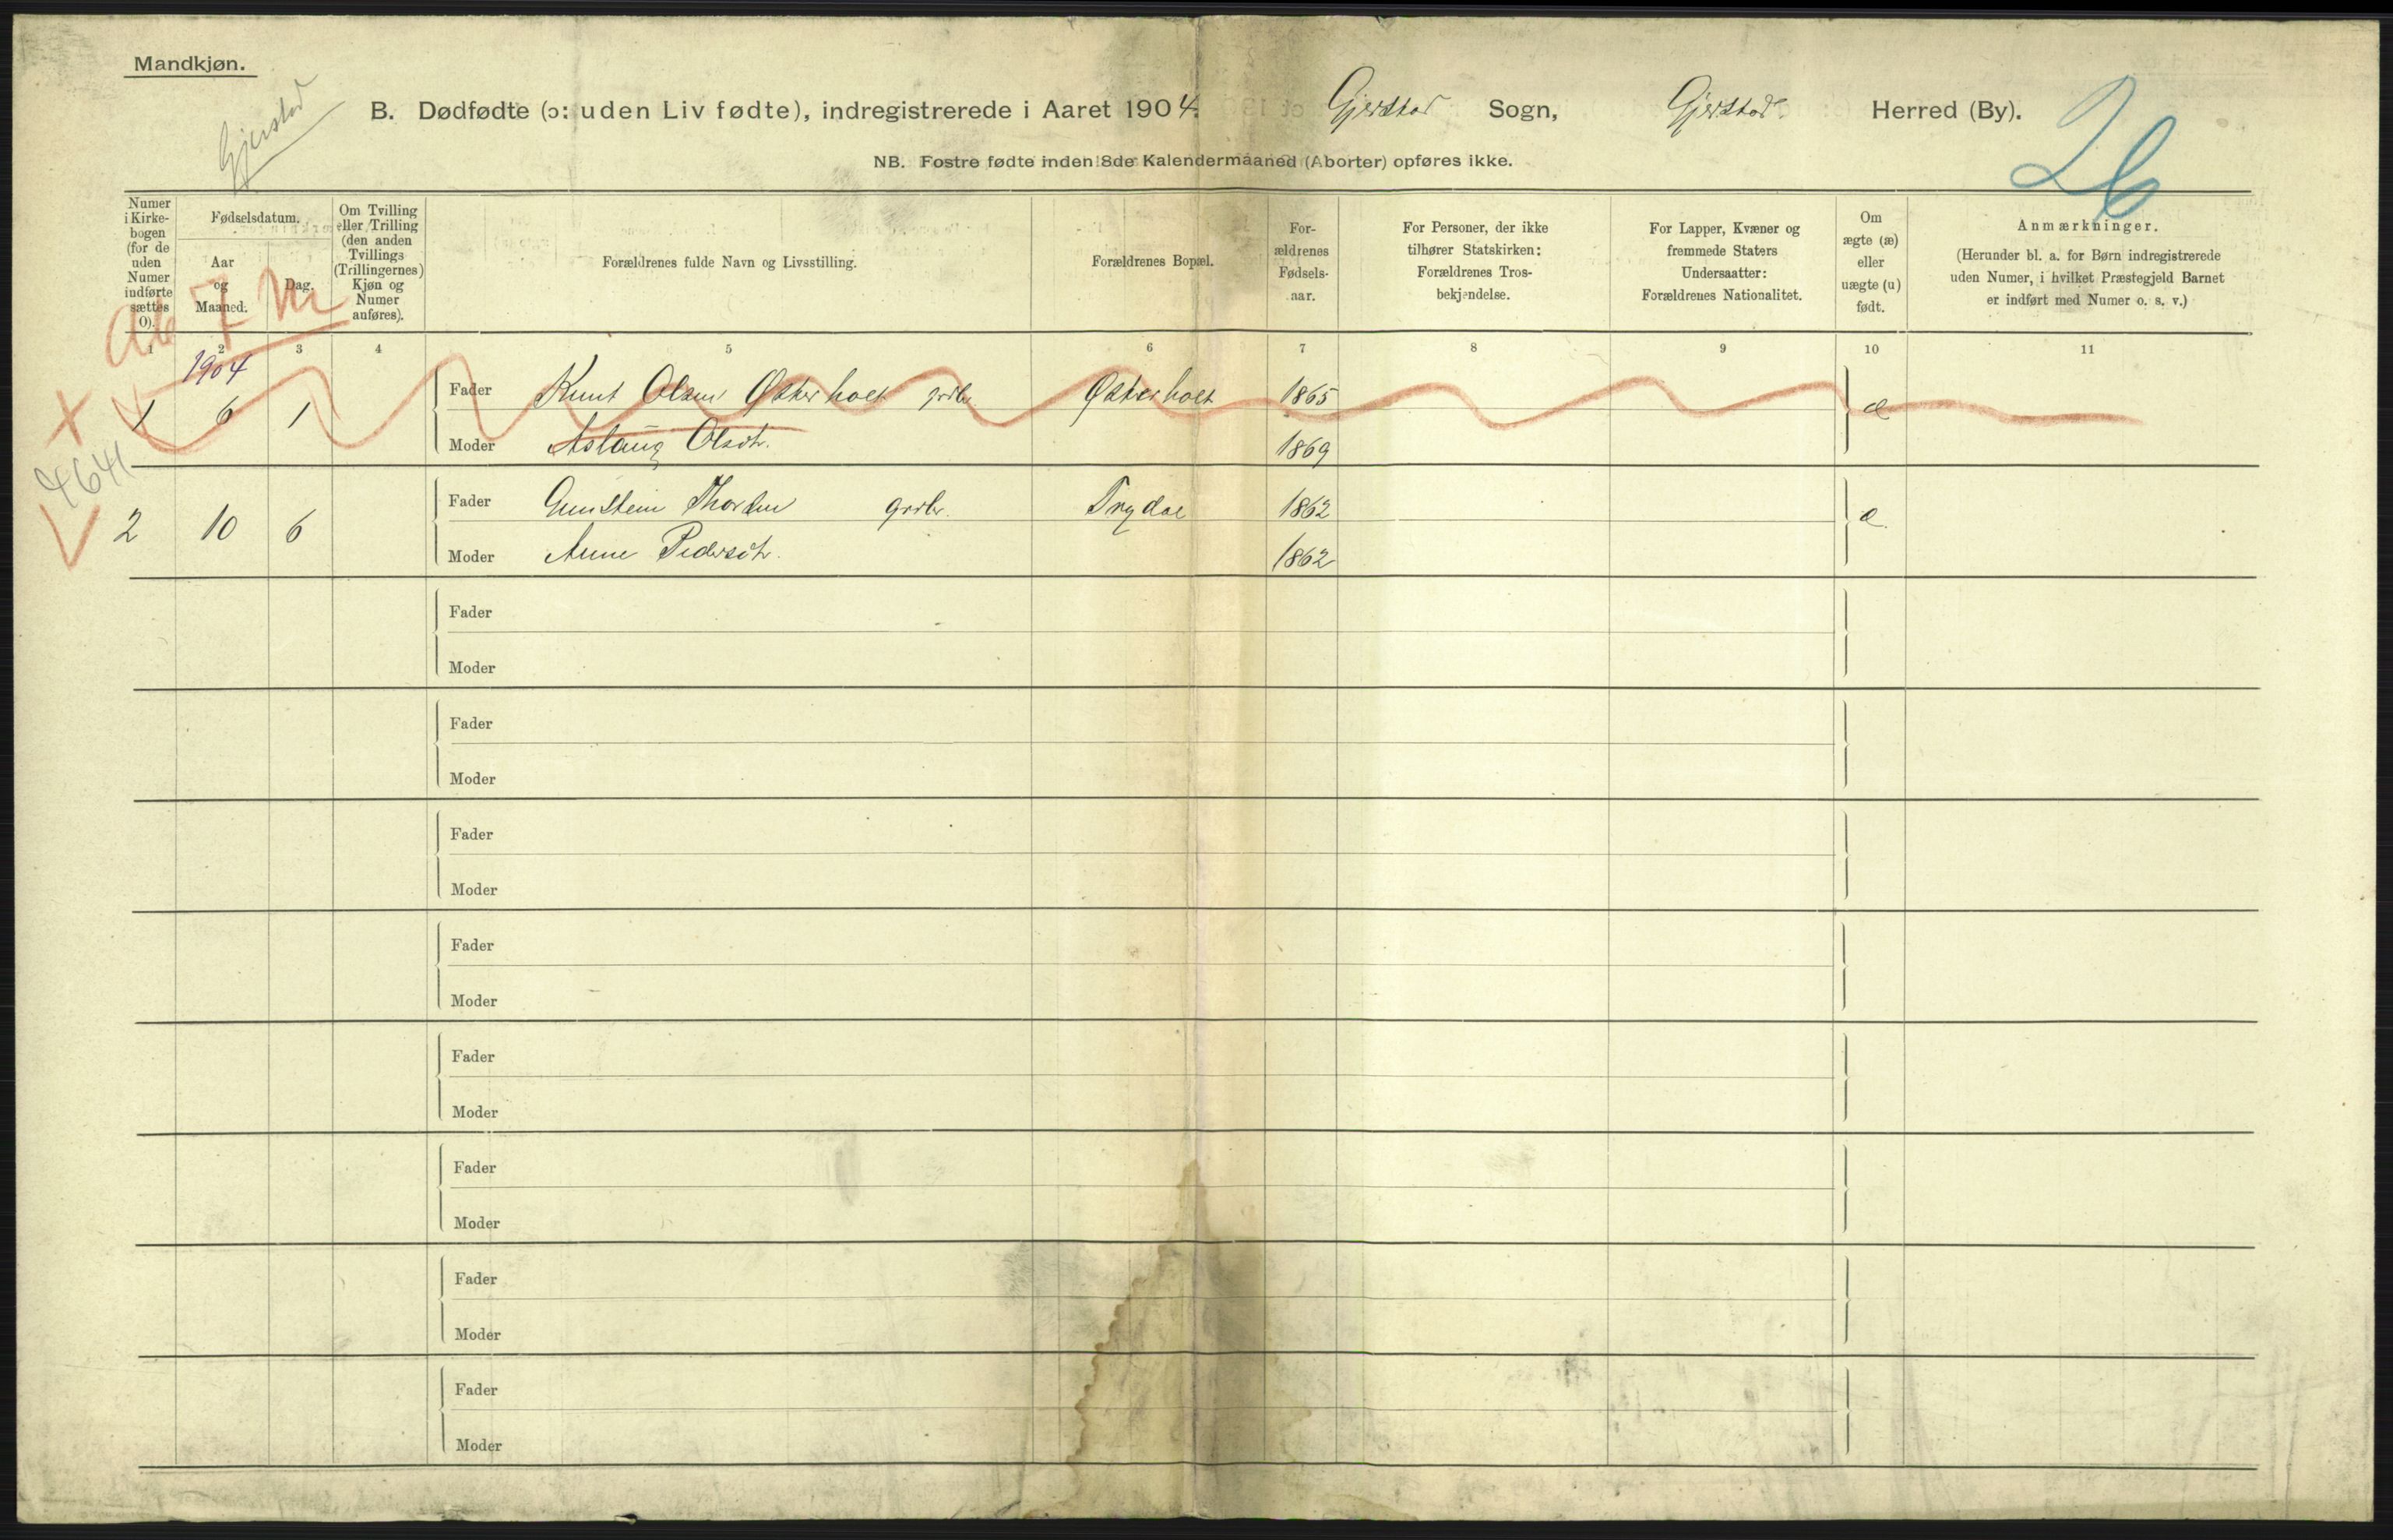 Mandkjøn.
Gjerstad
B. Dødfødte (ɔ: uden Liv fødte), indregistrerede i Aaret 1904. Gjerstad Sogn, Gjerstad Herred (By).
26
NB. Fostre fødte inden 8de Kalendermaaned (Aborter) opføres ikke.
Numer i Kirke-bogen (for de uden Numer indførte sættes 0).
Fødselsdatum.
Aar og Maaned.
Dag.
Om Tvilling eller Trilling (den anden Tvillings (Trillingernes) Kjøn og Numer anføres).
Forældrenes fulde Navn og Livsstilling.
Forældrenes Bopæl.
For-ældrenes Fødsels-aar.
For Personer, der ikke tilhører Statskirken: Forældrenes Tros-bekjendelse.
For Lapper, Kvæner og fremmede Staters Undersaatter: Forældrenes Nationalitet.
Om ægte (æ) eller uægte (u) født.
Anmærkninger.
(Herunder bl. a. for Børn indregistrerede uden Numer, i hvilket Præstegjeld Barnet er indført med Numer o. s. v.)
Ab 7 M
1 2 3 4 5 6 7 8 9 10 11
1904
1 6 1 Fader Knut Olsen Østerholt grdbr. Østerholt 1865 æ
Moder Aslaug Olsdtr. 1869
4641
2 10 6 Fader Gunstein Thorsen grdbr. Trydal 1862 æ.
Moder Anne Pedersdtr. 1862
Fader
Moder
Fader
Moder
Fader
Moder
Fader
Moder
Fader
Moder
Fader
Moder
Fader
Moder
Fader
Moder